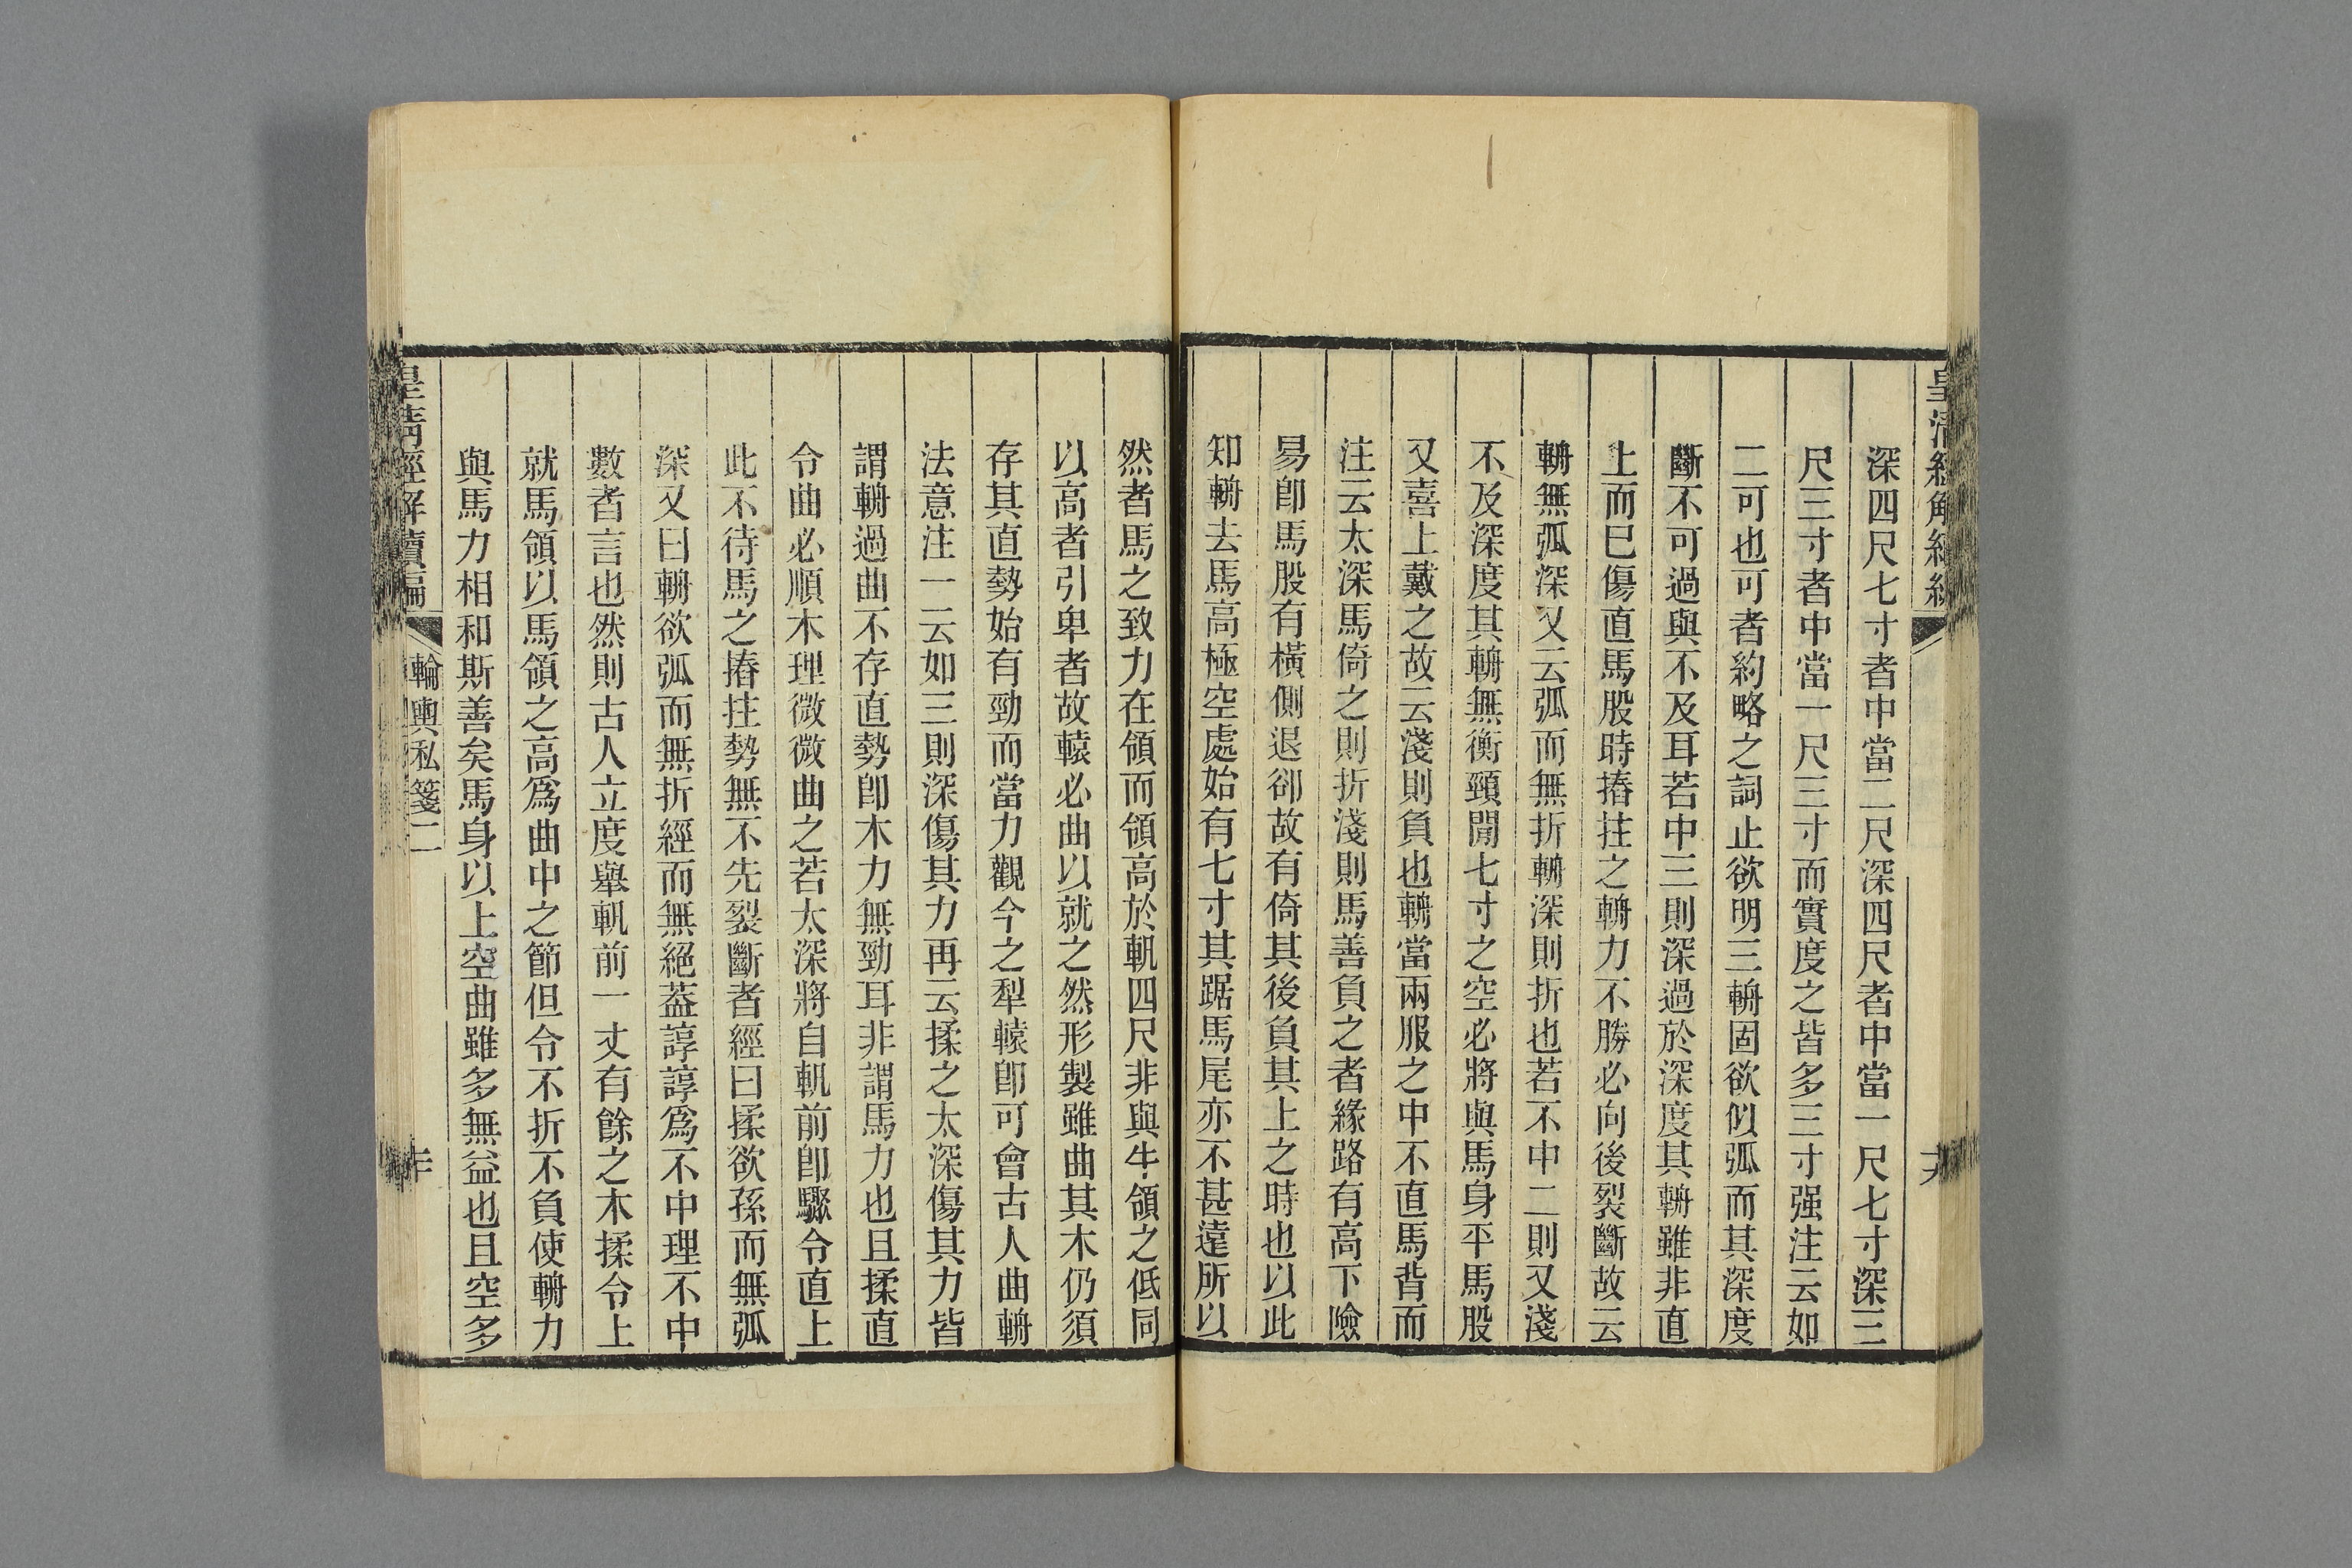 深四尺七寸者中當二尺深四尺者中當一尺七寸深三
尺三寸者中當一尺三寸而實度之皆多三寸强注云如
二可也可者約略之詞止欲明三輈固欲似弧而其深度
斷不可過與不及耳若中三則深過於深度其輈雖非直
上而巳傷直馬股時摏拄之輈力不勝必向後裂斷故云
輈無弧深又云弧而無折輈深則折也若不中二則又淺
不及深度其輈無衡頸閒七寸之空必將與馬身平馬股
又喜上戴之故云淺則負也輈當兩服之中不直馬背而
注云太深馬倚之則折淺則馬善負之者緣路有高下險
易卽馬股有橫側退卻故有倚其後負其上之時也以此
知輈去馬高極空處始有七寸其踞馬尾亦不甚遠所以
然者馬之致力在領而領高於軓四尺非與牛領之低同
以高者引卑者故轅必曲以就之然形製雖曲其木仍須
存其直勢始有勁而當力觀今之犁轅卽可會古人曲輈
法意注一云如三則深傷其力再云揉之太深傷其力皆
謂輈過曲不存直勢卽木力無勁耳非謂馬力也且揉直
令曲必順木理微微曲之若太深將自軓前卽驟令直上
此不待馬之摏拄勢無不先裂斷者經曰揉欲孫而無弧
深又曰輈欲弧而無折經而無絕葢諄諄爲不中理不中
數者言也然則古人立度舉軓前一丈有餘之木揉令上
就馬領以馬領之高爲曲中之節但令不折不負使輈力
與馬力相和斯善矣馬身以上空曲雖多無益也且空多
皇淸經解續編
輪輿私箋二